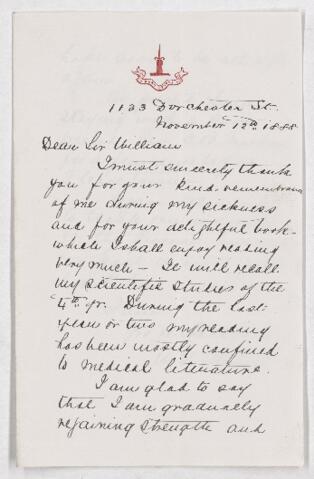 1133 Dorchester St.
November 12th 1888
Dear Sir William
I must sincerely thank
you for your kind remembrance
of me during my sickness
and for your delightful book -
which I shall enjoy reading
very much - It will recall
my scientific studies of the
4th yr. During the last
year or two my reading
has been mostly confined
to medical literature.
I am glad to say
that I am gradually
regaining strength and